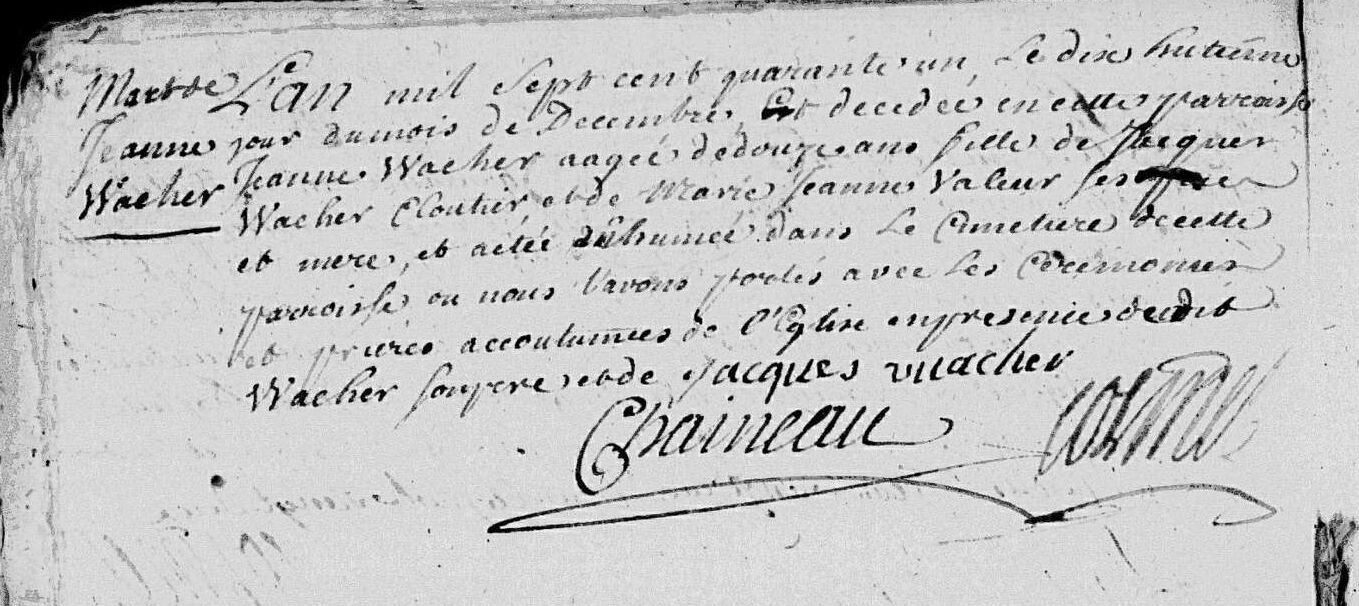 Mort de
Jeanne
Wacher
L'an mil sept cent quarante un, Le dix huitiême
jour du mois de Decembre, Est decedée en cette parroisse
Jeanne Wacher aagée de douze ans fille de Jacques
Wacher Cloutier et de Marie Jeanne Valeur ses
et mere, et a eté inhumée dans Le Cimetiere de cette
parroisse ou nous l'avons portés avec Les Cérémonies
et prieres accoutumées de l'Eglise en presence dudit
Wacher son pere, et de Jacques vuacher
Chaineau